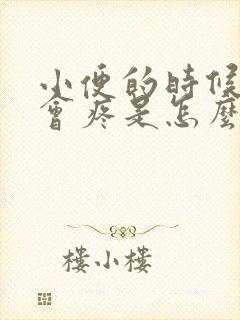 小便的時候
會疼是怎麼
樓小樓